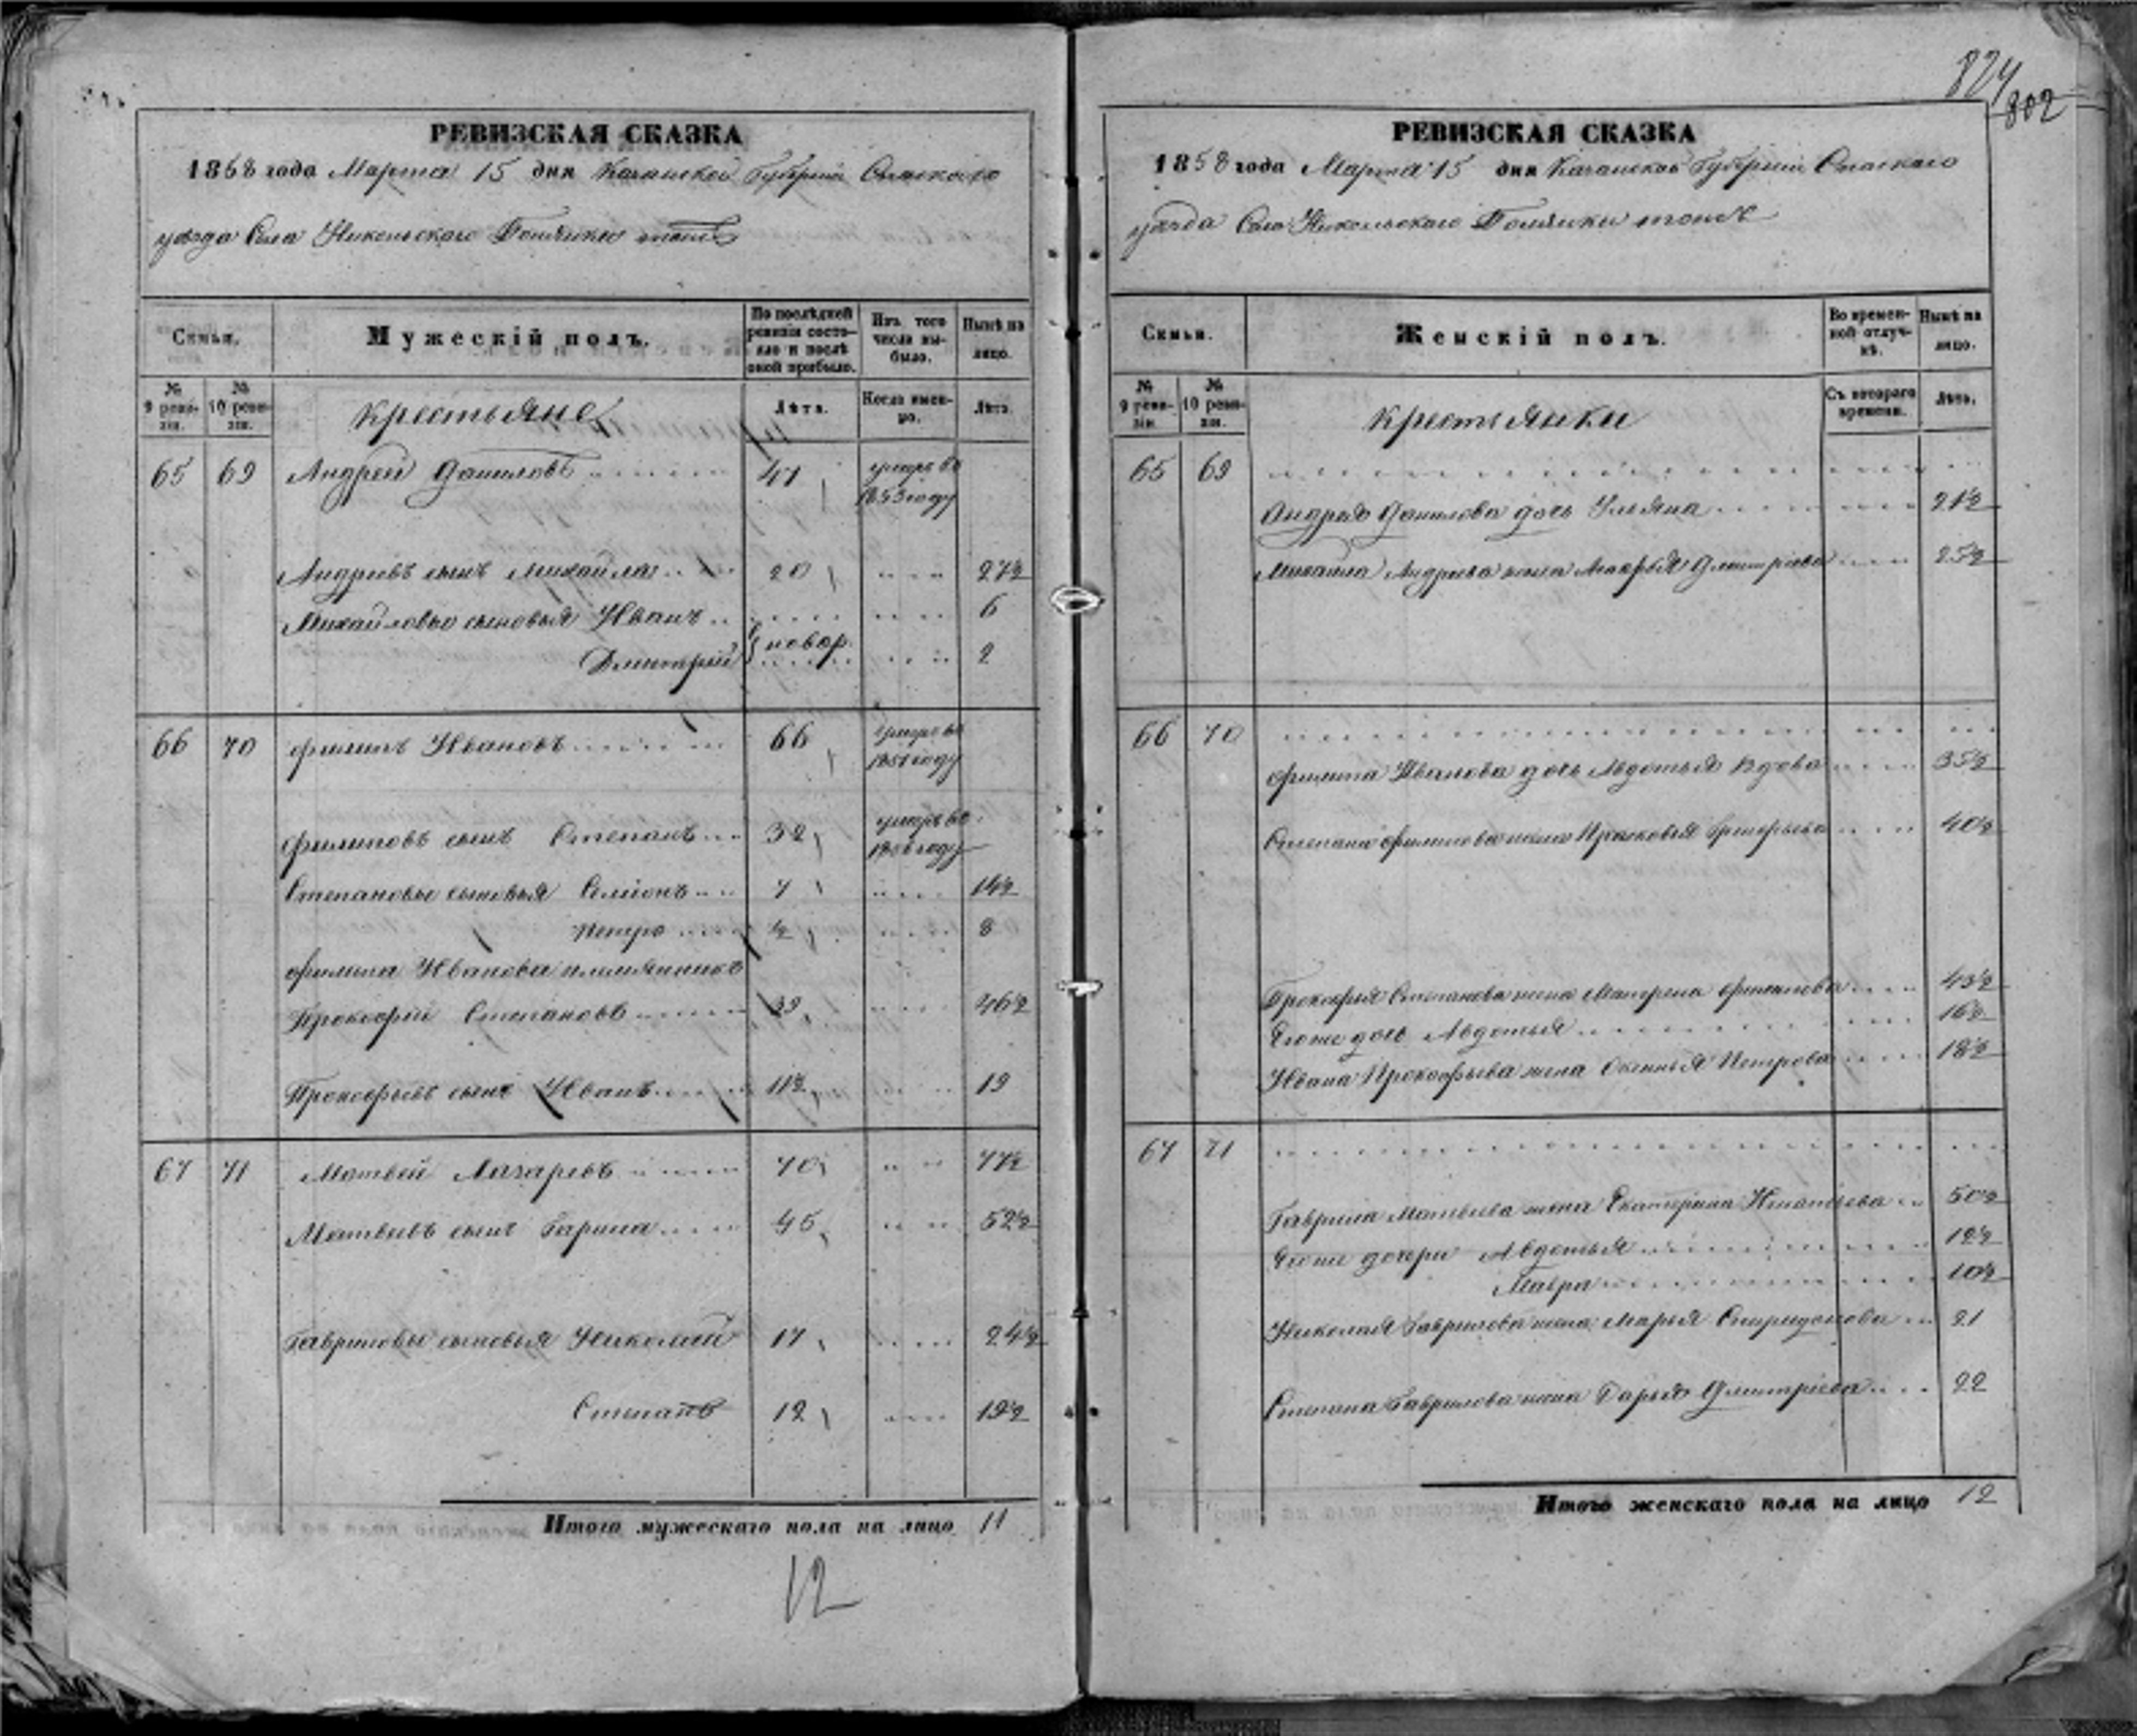 824/802
РЕВИЗСКАЯ СКАЗКА
1858 года Марта 15 дня Казанской Губернии Спаскаго
уѣзда Села Никольскаго тожъ
Семьи.
Мужескій полъ.
По послѣдней ревизіи состояло и послѣ оной прибыло.
Изъ того числа выбыло.
Нынѣ на лицо.
№ 9 ревизіи.
№ 10 ревизіи.
крестьяне
Лѣта.
Когда именно.
Лѣта.
65 69 Андрей Даниловъ 47 умеръ въ 1853 году
Андреевъ сынъ Михайла 20 27½
Михайловы сыновья Иванъ 6
Дмитрий новор. 2
66 70 Филипъ Ивановъ 66 умеръ въ 1851 году
Филиповъ сынъ Степанъ 32 умеръ въ году
Степановы сыновья Семионъ 7 14½
Петро ½ 8
Филипа Иванова племянникъ
Прокофий Степановъ 39 46½
Прокофьевъ сынъ Иванъ 11½ 19
67 71 Матвей Лазаревъ 70 77½
Матвеевъ сынъ Гаврила 45 52½
Гавриловы сыновья Николай 17 24½
Степанъ 12 19½
Итого мужескаго пола на лицо 11
12
РЕВИЗСКАЯ СКАЗКА
1858 года Марта 15 дня Казанской Губернии Спаскаго
уѣзда Села Никольскаго тожъ
Семьи.
Женскій полъ.
Во временной отлучкѣ.
Нынѣ на лицо.
№ 9 ревизіи.
№ 10 ревизіи.
крестьянки
Съ котораго времени.
Лѣта.
65 69
Андрея Данилова дочь Ульяна 21½
Михайла Андреева жена Марья Дмитриева 25½
66 70
Филипа Иванова дочь Авдотья вдова 35½
Степана Филипова жена Прасковья Григорьева 40½
Прокофья Степанова жена Матрена Филипова 45½
Егоже дочь Авдотья 16½
Ивана Прокофьева жена Оксинья Петрова 18½
67 71
Гаврила Матвеева жена Екатерина Игнатьева 50½
Егоже дочери Авдотья 12½
Мавра 10½
Николая Гаврилова жена Марья Спиридонова 21
Степана Гаврилова жена Дарья Дмитриева 22
Итого женскаго пола на лицо 12